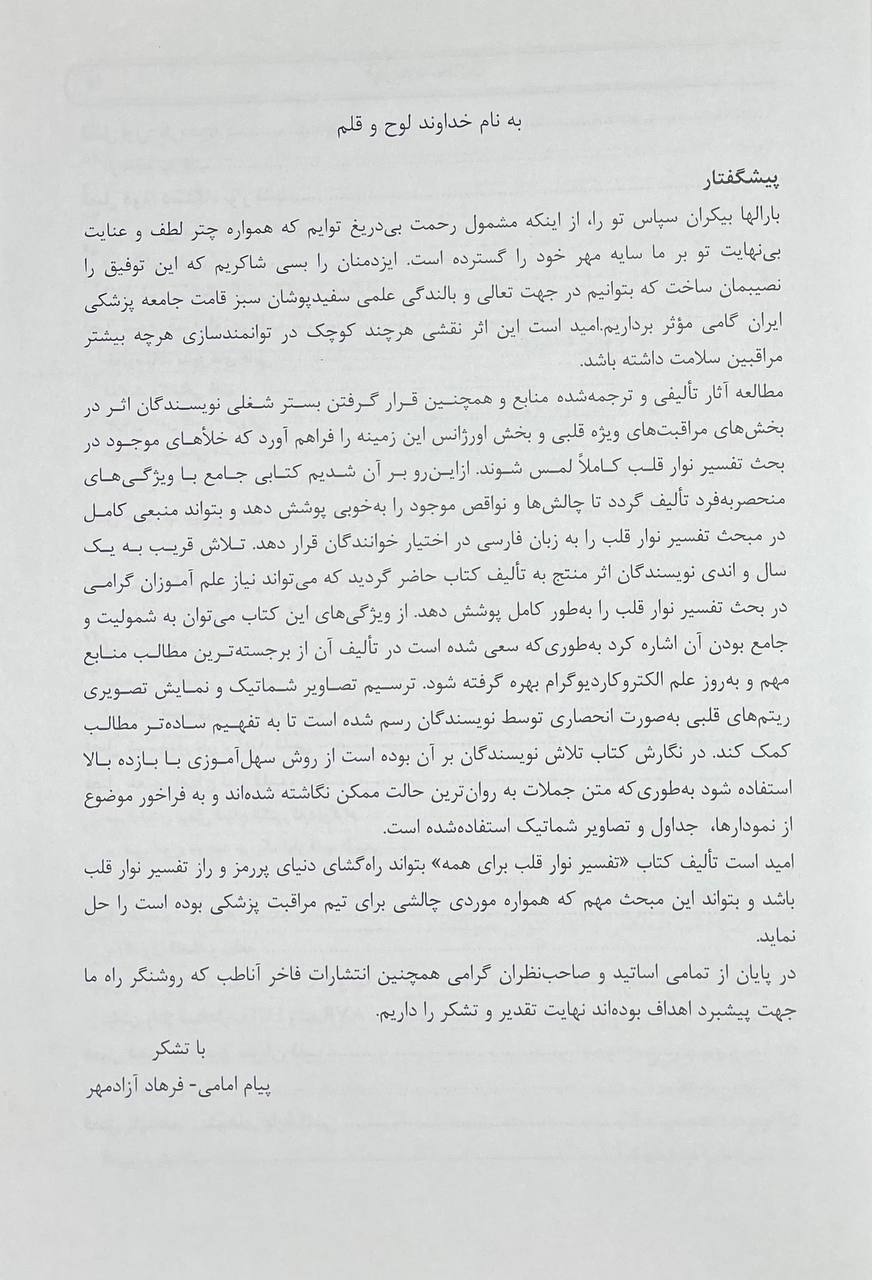 به نام خداوند لوح و قلم
پیشگفتار
بارالها بیکران سپاس تو را، از اینکه مشمول رحمت بی‌دریغ توایم که همواره چتر لطف و عنایت
بی‌نهایت تو بر ما سایه مهر خود را گسترده است. ایزدمنان را بسی شاکریم که این توفیق را
نصیبمان ساخت که بتوانیم در جهت تعالی و بالندگی علمی سفیدپوشان سبز قامت جامعه پزشکی
ایران گامی مؤثر برداریم.امید است این اثر نقشی هرچند کوچک در توانمندسازی هرچه بیشتر
مراقبین سلامت داشته باشد.
مطالعه آثار تألیفی و ترجمه‌شده منابع و همچنین قرار گرفتن بستر شغلی نویسندگان اثر در
بخش‌های مراقبت‌های ویژه قلبی و بخش اورژانس این زمینه را فراهم آورد که خلأهای موجود در
بحث تفسیر نوار قلب کاملاً لمس شوند. ازاین‌رو بر آن شدیم کتابی جامع با ویژگی‌های
منحصربه‌فرد تألیف گردد تا چالش‌ها و نواقص موجود را به‌خوبی پوشش دهد و بتواند منبعی کامل
در مبحث تفسیر نوار قلب را به زبان فارسی در اختیار خوانندگان قرار دهد. تلاش قریب به یک
سال و اندی نویسندگان اثر منتج به تألیف کتاب حاضر گردید که می‌تواند نیاز علم آموزان گرامی
در بحث تفسیر نوار قلب را به‌طور کامل پوشش دهد. از ویژگی‌های این کتاب می‌توان به شمولیت و
جامع بودن آن اشاره کرد به‌طوری‌که سعی شده است در تألیف آن از برجسته‌ترین مطالب منابع
مهم و به‌روز علم الکتروکاردیوگرام بهره گرفته شود. ترسیم تصاویر شماتیک و نمایش تصویری
ریتم‌های قلبی به‌صورت انحصاری توسط نویسندگان رسم شده است تا به تفهیم ساده‌تر مطالب
کمک کند. در نگارش کتاب تلاش نویسندگان بر آن بوده است از روش سهل‌آموزی با بازده بالا
استفاده شود به‌طوری‌که متن جملات به روان‌ترین حالت ممکن نگاشته شده‌اند و به فراخور موضوع
از نمودارها، جداول و تصاویر شماتیک استفاده‌شده است.
امید است تألیف کتاب «تفسیر نوار قلب برای همه» بتواند راه‌گشای دنیای پررمز و راز تفسیر نوار قلب
باشد و بتواند این مبحث مهم که همواره موردی چالشی برای تیم مراقبت پزشکی بوده است را حل
نماید.
در پایان از تمامی اساتید و صاحب‌نظران گرامی همچنین انتشارات فاخر آناطب که روشنگر راه ما
جهت پیشبرد اهداف بوده‌اند نهایت تقدیر و تشکر را داریم.
با تشکر
پیام امامی- فرهاد آزادمهر